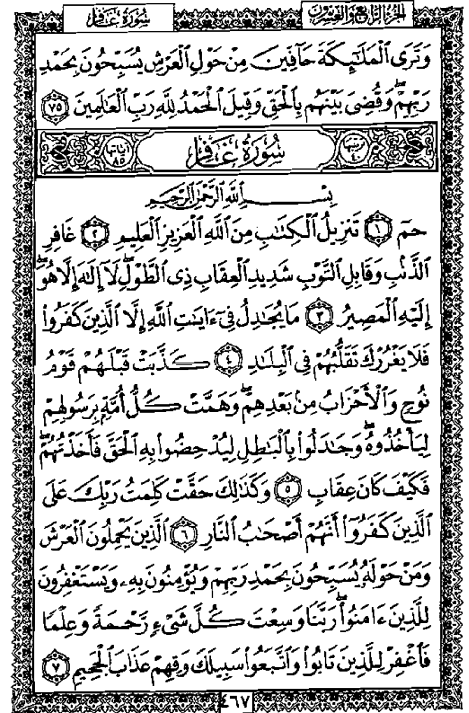 سُورَةُ غَافِر
الجزء الرابع والعشرون
وَتَرَى ٱلْمَلَٰٓئِكَةَ حَآفِّينَ مِنْ حَوْلِ ٱلْعَرْشِ يُسَبِّحُونَ بِحَمْدِ
رَبِّهِمْۖ وَقُضِيَ بَيْنَهُم بِٱلْحَقِّ وَقِيلَ ٱلْحَمْدُ لِلَّهِ رَبِّ ٱلْعَٰلَمِينَ ٧٥
ترتيبها ٤٠ سُورَةُ غَافِر آياتها ٨٥
بِسْمِ ٱللَّهِ ٱلرَّحْمَٰنِ ٱلرَّحِيمِ
حمٓ ١ تَنزِيلُ ٱلْكِتَٰبِ مِنَ ٱللَّهِ ٱلْعَزِيزِ ٱلْعَلِيمِ ٢ غَافِرِ
ٱلذَّنۢبِ وَقَابِلِ ٱلتَّوْبِ شَدِيدِ ٱلْعِقَابِ ذِي ٱلطَّوْلِۖ لَآ إِلَٰهَ إِلَّا هُوَۖ
إِلَيْهِ ٱلْمَصِيرُ ٣ مَا يُجَٰدِلُ فِيٓ ءَايَٰتِ ٱللَّهِ إِلَّا ٱلَّذِينَ كَفَرُوا۟
فَلَا يَغْرُرْكَ تَقَلُّبُهُمْ فِي ٱلْبِلَٰدِ ٤ كَذَّبَتْ قَبْلَهُمْ قَوْمُ
نُوحٍ وَٱلْأَحْزَابُ مِنۢ بَعْدِهِمْۖ وَهَمَّتْ كُلُّ أُمَّةٍۭ بِرَسُولِهِمْ
لِيَأْخُذُوهُۖ وَجَٰدَلُوا۟ بِٱلْبَٰطِلِ لِيُدْحِضُوا۟ بِهِ ٱلْحَقَّ فَأَخَذْتُهُمْۖ
فَكَيْفَ كَانَ عِقَابِ ٥ وَكَذَٰلِكَ حَقَّتْ كَلِمَتُ رَبِّكَ عَلَى
ٱلَّذِينَ كَفَرُوٓا۟ أَنَّهُمْ أَصْحَٰبُ ٱلنَّارِ ٦ ٱلَّذِينَ يَحْمِلُونَ ٱلْعَرْشَ
وَمَنْ حَوْلَهُۥ يُسَبِّحُونَ بِحَمْدِ رَبِّهِمْ وَيُؤْمِنُونَ بِهِۦ وَيَسْتَغْفِرُونَ
لِلَّذِينَ ءَامَنُوا۟ۖ رَبَّنَا وَسِعْتَ كُلَّ شَيْءٍ رَّحْمَةً وَعِلْمًا
فَٱغْفِرْ لِلَّذِينَ تَابُوا۟ وَٱتَّبَعُوا۟ سَبِيلَكَ وَقِهِمْ عَذَابَ ٱلْجَحِيمِ ٧
٤٦٧